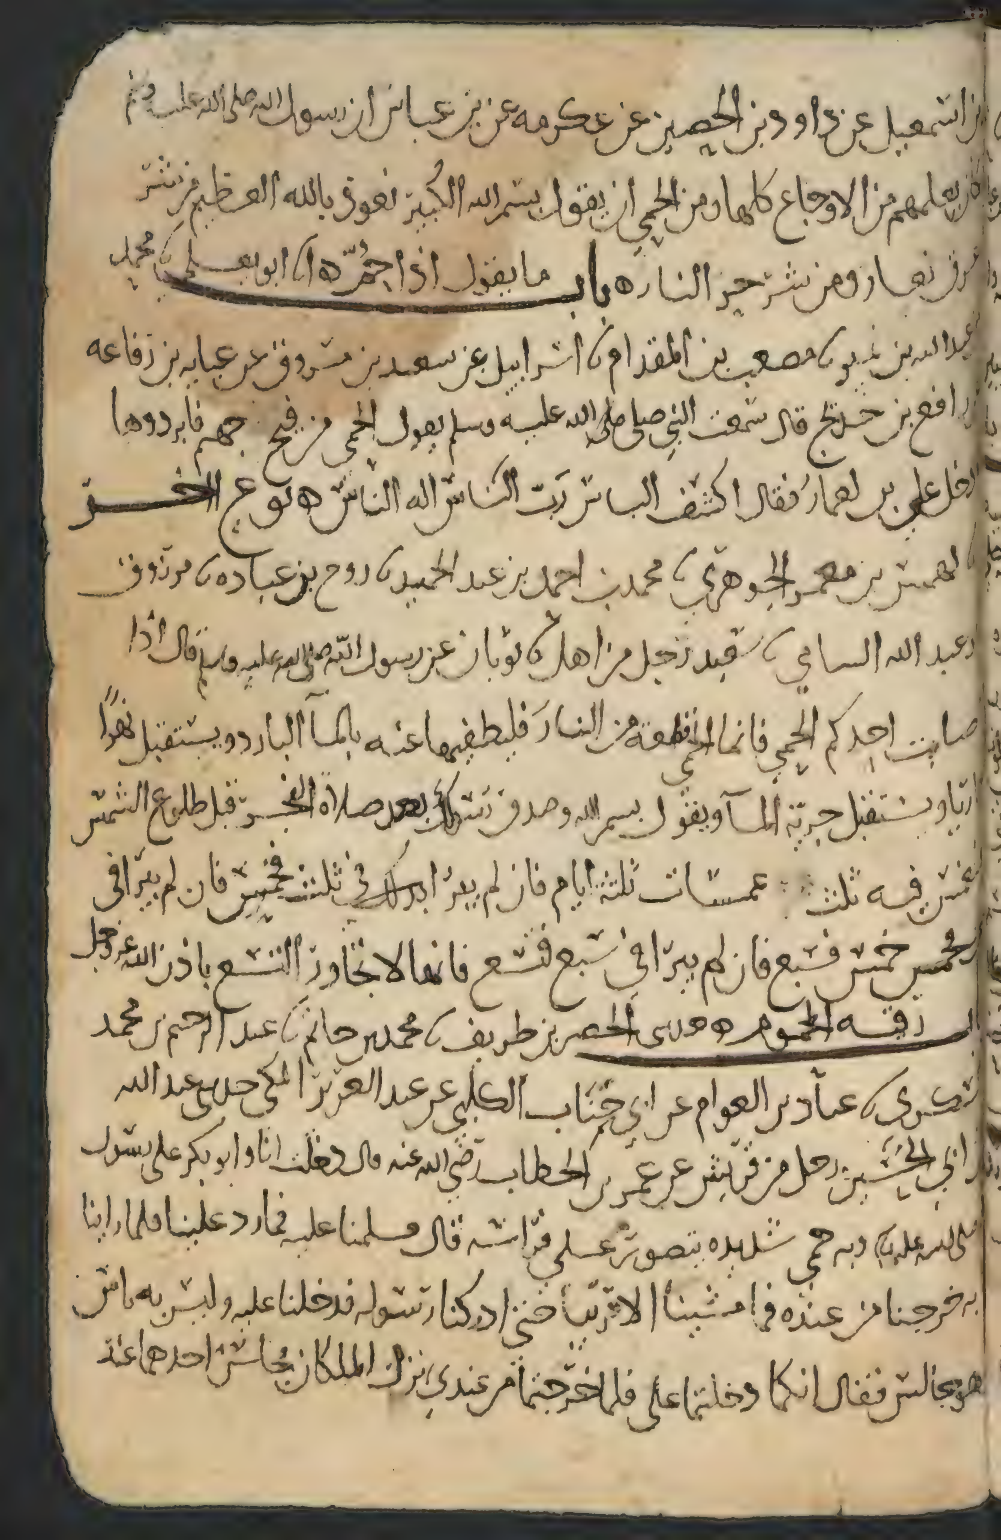 بن اسمعيل عن داود بن الحصين عن عكرمه عن بن عباس ان رسول الله صلى الله عليه وسلم
كان يعلمهم من الاوجاع كلها ومن الحمي ان يقول بسم الله الكبير نعوذ بالله العظيم من شر
عرق نعار ومن شر حر النار ه باب ما يقول اذا حُمّ ه ابو يعلي محمد
عبد الله بن نمير مصعب بن المقدام اسرابيل عن سعيد بن مسروق عن عبايه بن رفاعه
رافع بن خديج قال سمعت النبي صلى الله عليه وسلم يقول الحمي من فيح جهنم فابردوها
دخل علي بن لعمار فقال اكشف الباس رب الناس اله الناس ه نوع اخر
محمد بن احمد بن عبد الحميد روح بن عباده مرزوق
عبد الله السامي سعيد رجل من اهل ثوبان عن رسول الله صلى الله عليه وسلم قال اذا
صابت احدكم الحمي فانما الحمي قطعة من النار فليطفيها عنه بالمآ البارد ويستقبل نهرًا
ويستقبل جرية المآ ويقول بسم الله وصدق رسولك بعد صلاة الفجر قبل طلوع الشمس
فيه ثلث غمسات ثلثة ايام فان لم يبرا في ثلث فخمس فان لم يبرا في
خمس فسبع فان لم يبرا في سبع فتسع فانها لا تجاوز التسع باذن الله عز وجل
رقيه المحموم ه بن طريف محمد بن حاتم عبد الرحيم بن محمد
عبآد بن العوام عن ابي جناب الكلبي عن عبد العزيز المكي عبد الله
ابي الحسين رجل من قريش عن عمر بن الخطاب رضي الله عنه قال دخلت انا وابو بكر على رسول
صلى الله عليه وبه حمي شديده علي فراشه قال فسلمنا عليه فما رد علينا فلما راينا
به خرجنا من عنده فما مشينا الا قريبا حتى ادركنا رسوله فدخلنا عليه وليس به باس
هو جالس فقال انكما دخلتما على فلما خرجتما من عندي نزل الملكان فجلس احدهما عند